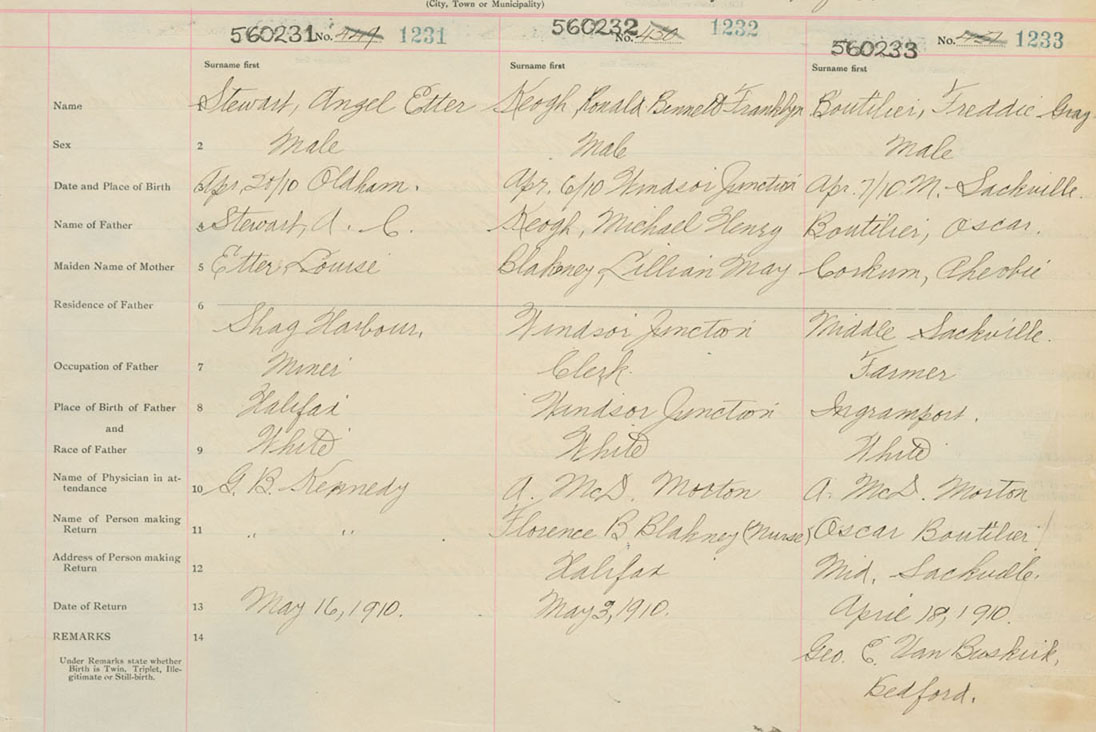 (City, Town or Municipality)
560231 No. 449 1231 560232 No. 450 1232 560233 No. 451 1233
Surname first Surname first Surname first
Name 1 Stewart, Angel Etter Keogh, Ronald Bennett Franklyn Boutilier, Freddie Gray
Sex 2 Male Male Male
Date and Place of Birth Apr. 20/10 Oldham. Apr. 6/10 Windsor Junction Apr. 7/10 M. Sackville.
Name of Father 4 Stewart, A. C. Keogh, Michael Henry Boutilier, Oscar.
Maiden Name of Mother 5 Etter, Louise Blakney, Lillian May Corkum, Pheobie
Residence of Father 6
Shag Harbour, Windsor Junction Middle Sackville.
Occupation of Father 7 Miner Clerk. Farmer
Place of Birth of Father 8 Halifax Windsor Junction Ingramport.
and
Race of Father 9 White White White
Name of Physician in at-
tendance 10 G. B. Kennedy A. McD. Morton A. McD. Morton
Name of Person making
Return 11 " " Florence B Blakney (Nurse) Oscar Boutilier
Address of Person making
Return 12 Halifax Mid. Sackville.
Date of Return 13 May 16, 1910. May 3, 1910. April 18, 1910.
REMARKS 14
Geo. E. Van Buskirk,
Under Remarks state whether
Birth is Twin, Triplet, Ille-
gitimate or Still-birth.
Bedford.